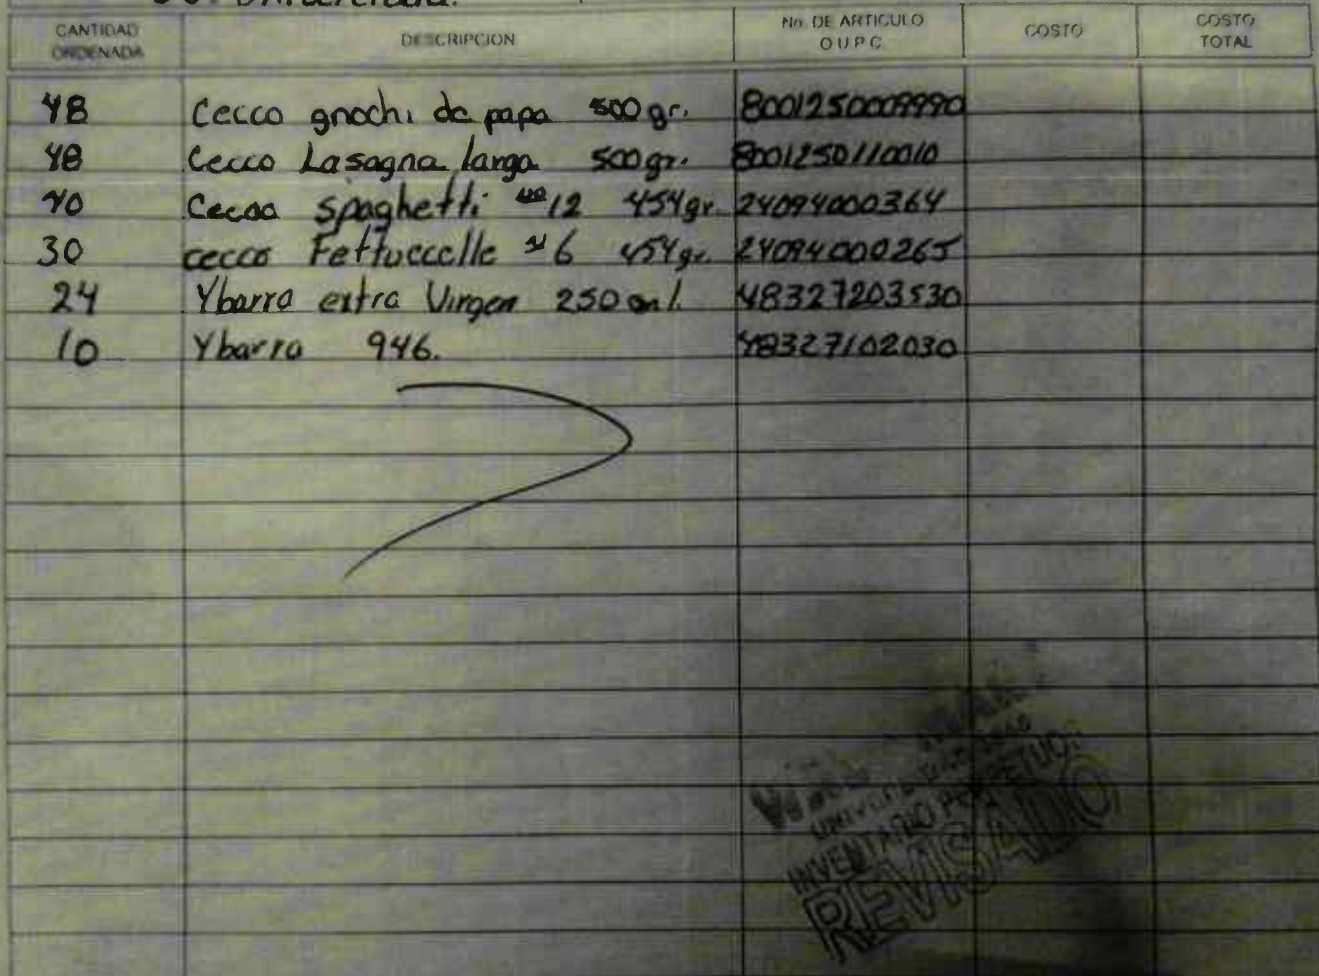 CANTIDAD ORDENADA DESCRIPCION No. DE ARTICULO O U.P.C COSTO COSTO TOTAL
48 Cecco gnochi de papa 500 gr. 8001250009990
48 Cecco Lasagna larga 500 gr. 8001250110010
40 Cecco spaghetti 12 454 gr. 24094000364
30 cecco Fettuccelle #6 454 gr. 24094000265
24 Ybarra extra Virgen 250 ml. 48327203530
10 Ybarra 946. 48327102030
INVENTARIO PERPETUO
REVISADO